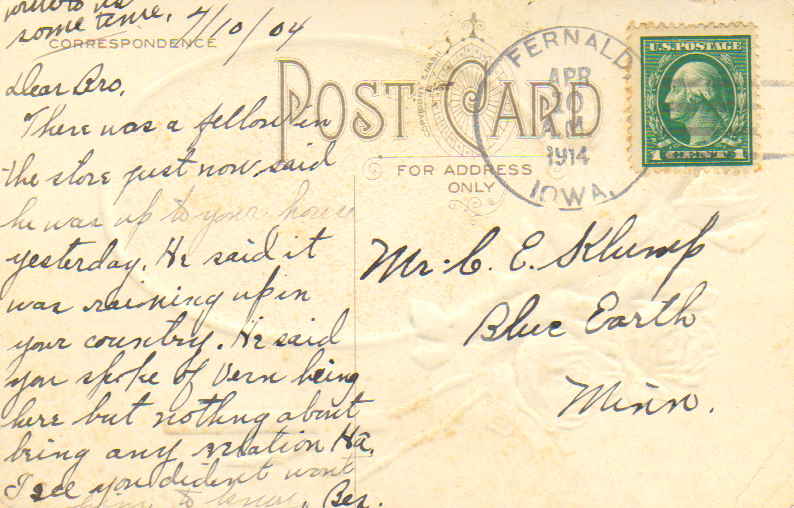 write to us
some time.
4/10/04
CORRESPONDENCE
POST CARD
FOR ADDRESS
ONLY
FERNALD,
APR
10
A.M.
1914
IOWA.
U.S. POSTAGE
1 CENT 1
Dear Bro,
There was a fellow in
the store just now said
he was up to your house
yesterday. He said it
was raining up in
your country. He said
you spoke of Vern being
here but nothing about
being any relation Ha.
I see you dident want
to know. Bes.
Mr. C. E. Klump
Blue Earth
Minn.